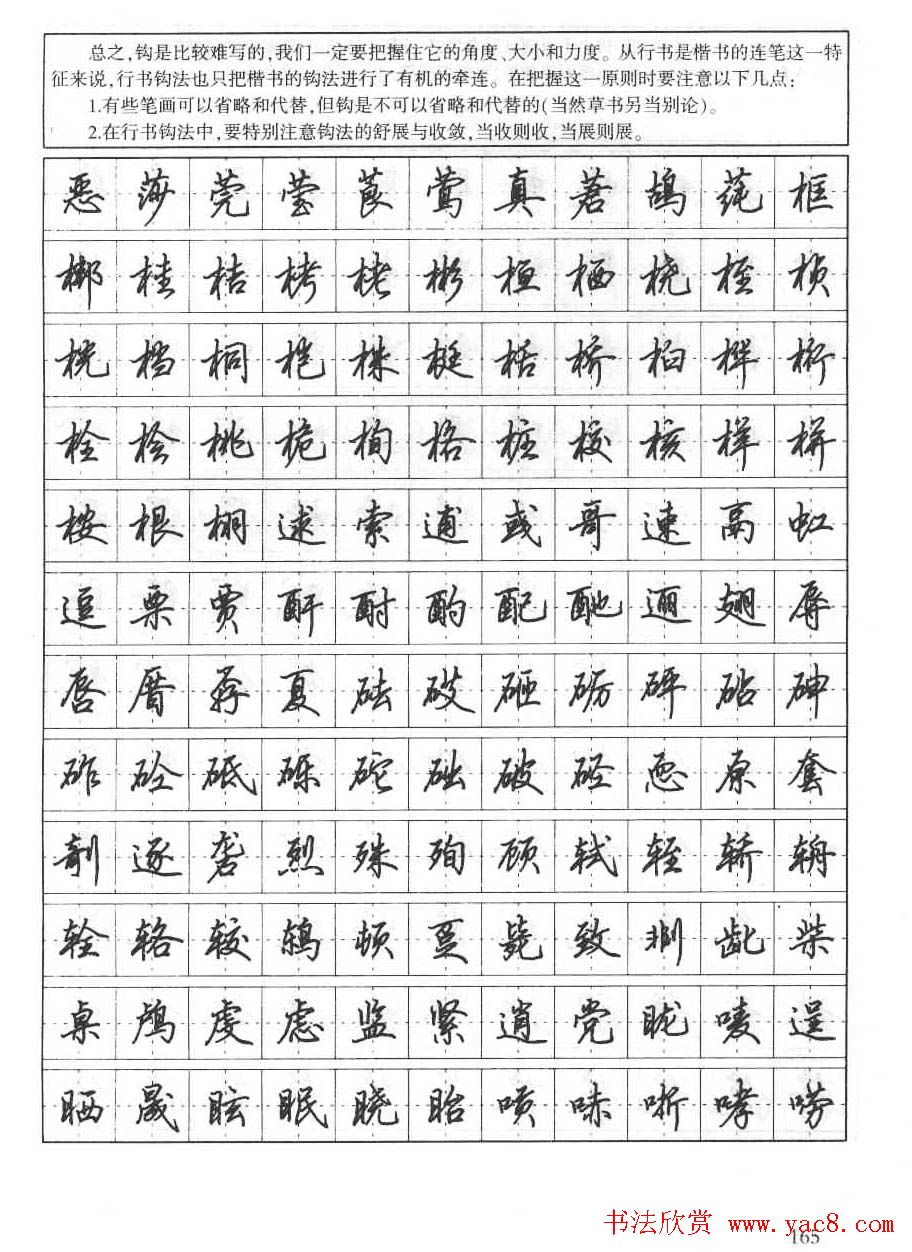 总之,钩是比较难写的,我们一定要把握住它的角度、大小和力度。从行书是楷书的连笔这一特
征来说,行书钩法也只把楷书的钩法进行了有机的牵连。在把握这一原则时要注意以下几点:
1.有些笔画可以省略和代替,但钩是不可以省略和代替的(当然草书另当别论)。
2.在行书钩法中,要特别注意钩法的舒展与收敛,当收则收,当展则展。
恶 莎 莞 莹 莨 莺 真 莙 鸪 莼 框
梆 桂 桔 栲 栳 彬 桓 栖 桡 桎 桢
桄 档 桐 桤 株 梃 栝 桥 桕 桦 桁
栓 桧 桃 桅 栒 格 桩 校 核 样 栟
桉 根 栩 逑 索 逋 彧 哥 速 鬲 虹
逗 栗 贾 酐 酎 酌 配 酏 逦 翅 辱
唇 厝 孬 夏 砝 砹 砸 砺 砰 砧 砷
砟 砼 砥 砾 砣 础 破 硁 恧 原 套
剞 逐 砻 烈 殊 殉 顾 轼 轾 轿 辀
辁 辂 较 鸫 顿 趸 毙 致 剕 龀 柴
桌 鸬 虔 虑 监 紧 逍 党 眬 唛 逞
晒 晟 眩 眠 晓 眙 唝 哧 哳 哮 唠
书法欣赏 www.yac8.com
165